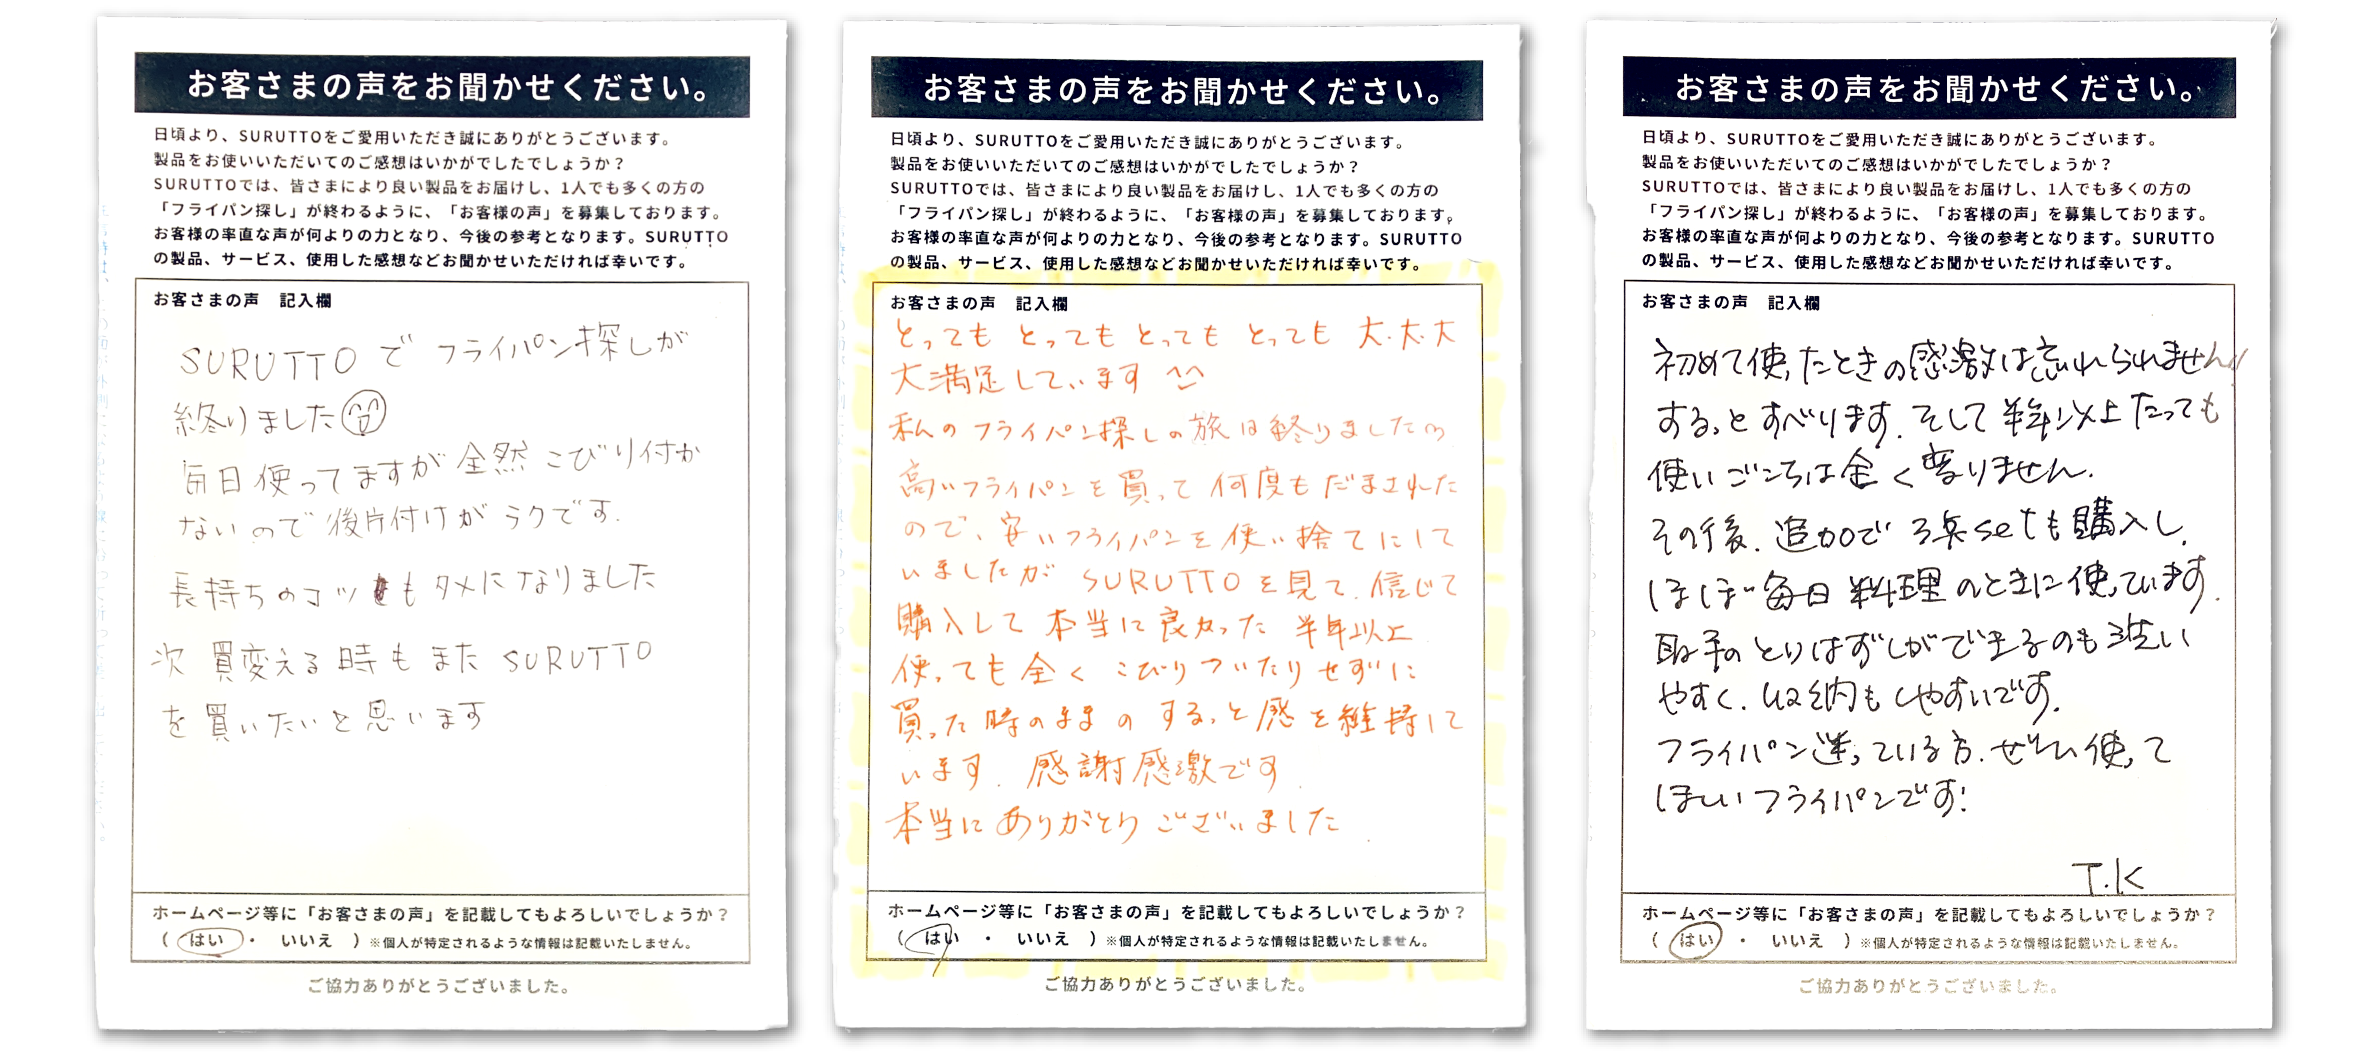 お客さまの声をお聞かせください。
日頃より、SURUTTOをご愛用いただき誠にありがとうございます。
製品をお使いいただいてのご感想はいかがでしたでしょうか？
SURUTTOでは、皆さまにより良い製品をお届けし、1人でも多くの方の
「フライパン探し」が終わるように、「お客様の声」を募集しております。
お客様の率直な声が何よりの力となり、今後の参考となります。SURUTTO
の製品、サービス、使用した感想などお聞かせいただければ幸いです。
お客さまの声　記入欄
SURUTTOで フライパン探しが
終りました
毎日使ってますが全然こびり付か
ないので後片付けがラクです.
長持ちのコツもタメになりました
次買変える時もまたSURUTTO
を買いたいと思います
ホームページ等に「お客さまの声」を記載してもよろしいでしょうか？
（ はい ・ いいえ ）※個人が特定されるような情報は記載いたしません。
ご協力ありがとうございました。
お客さまの声をお聞かせください。
日頃より、SURUTTOをご愛用いただき誠にありがとうございます。
製品をお使いいただいてのご感想はいかがでしたでしょうか？
SURUTTOでは、皆さまにより良い製品をお届けし、1人でも多くの方の
「フライパン探し」が終わるように、「お客様の声」を募集しております。
お客様の率直な声が何よりの力となり、今後の参考となります。SURUTTO
の製品、サービス、使用した感想などお聞かせいただければ幸いです。
お客さまの声　記入欄
とっても とっても とっても とっても 大・大・大
大満足しています ^^
私のフライパン探しの旅は終りました
高いフライパンを買って何度もだまされた
ので、安いフライパンを使い捨てにして
いましたが SURUTTOを見て、信じて
購入して本当に良かった 半年以上
使っても全くこびりついたりせずに
買った時のままのするっと感を維持して
います. 感謝感激です.
本当にありがとうございました.
ホームページ等に「お客さまの声」を記載してもよろしいでしょうか？
（ はい ・ いいえ ）※個人が特定されるような情報は記載いたしません。
ご協力ありがとうございました。
お客さまの声をお聞かせください。
日頃より、SURUTTOをご愛用いただき誠にありがとうございます。
製品をお使いいただいてのご感想はいかがでしたでしょうか？
SURUTTOでは、皆さまにより良い製品をお届けし、1人でも多くの方の
「フライパン探し」が終わるように、「お客様の声」を募集しております。
お客様の率直な声が何よりの力となり、今後の参考となります。SURUTTO
の製品、サービス、使用した感想などお聞かせいただければ幸いです。
お客さまの声　記入欄
初めて使ったときの感激は忘れられません!!
するっとすべります. そして半年以上たっても
使いごこちは全く変りません.
その後、追加で3点setも購入し、
ほぼ毎日料理のときに使っています.
取手のとりはずしができるのも洗い
やすく、収納もしやすいです.
フライパン迷っている方、ぜひ使って
ほしいフライパンです!
T.K
ホームページ等に「お客さまの声」を記載してもよろしいでしょうか？
（ はい ・ いいえ ）※個人が特定されるような情報は記載いたしません。
ご協力ありがとうございました。